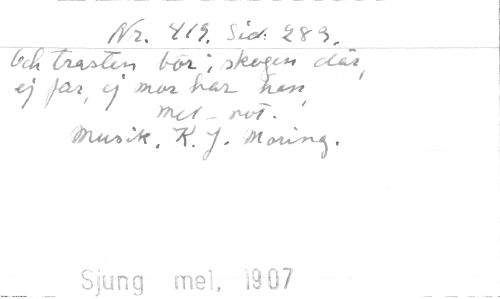 Nr. 419. Sid. 289.
Och trasten bor i skogen där,
ej far, ej mor har han,
mel - not.
Musik. K. J. Moring.
Sjung mel, 1907